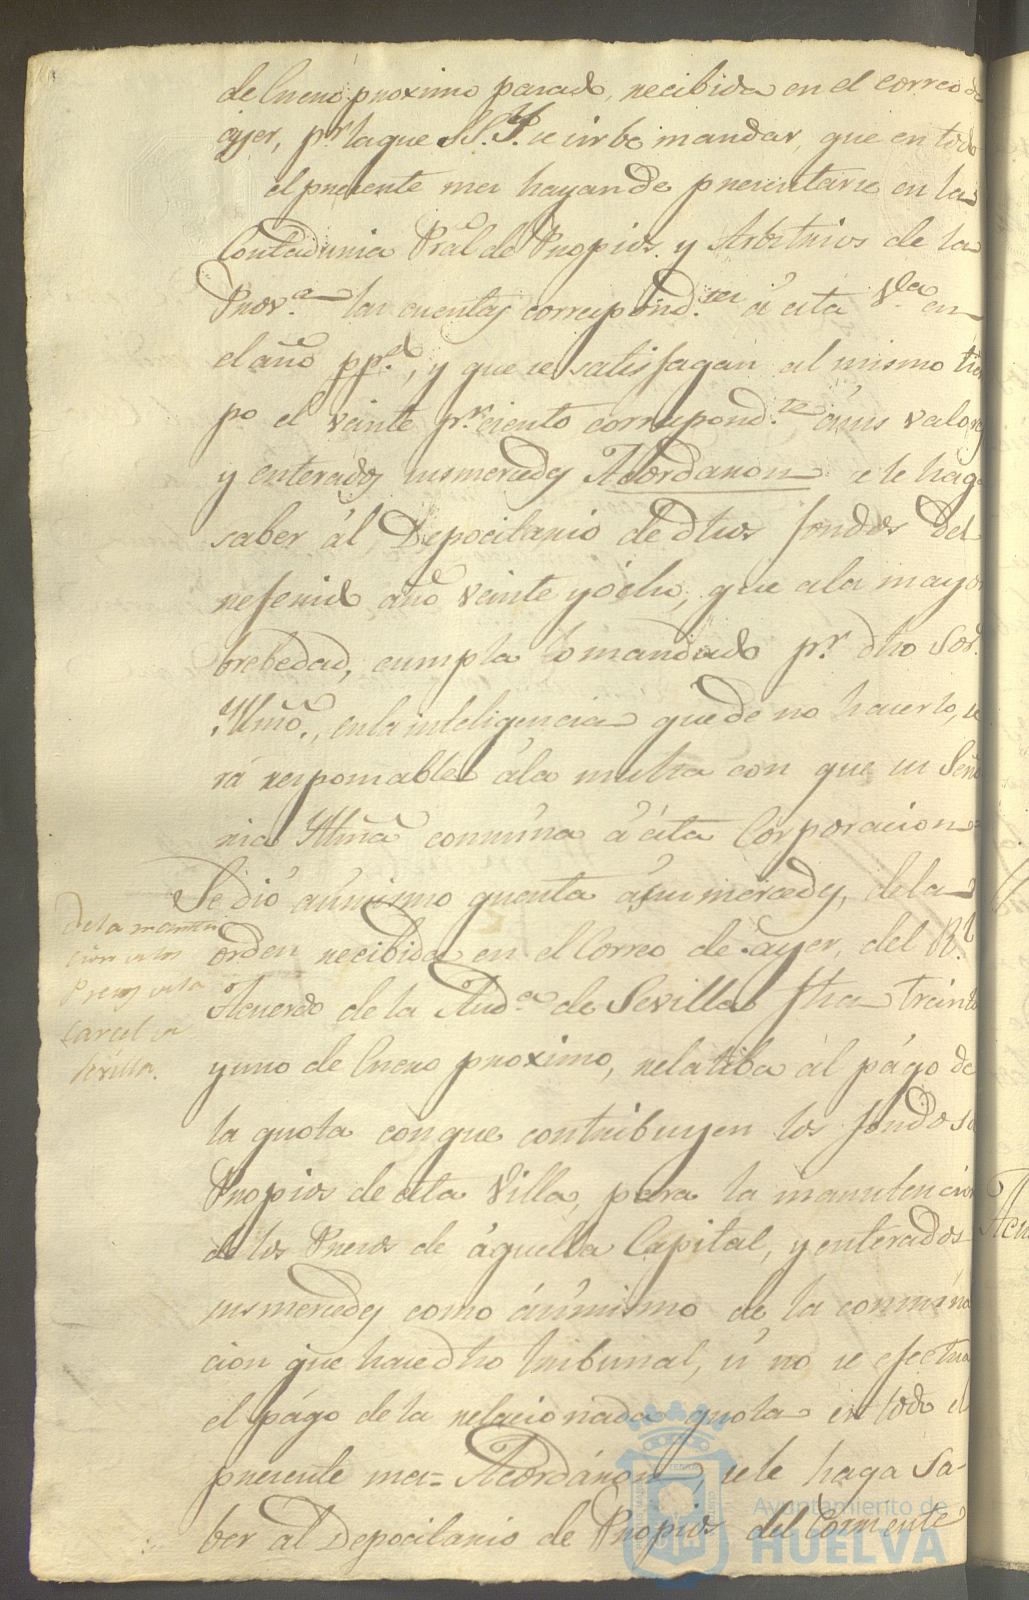 de Enero proximo pasado, recibida en el correo de
ayer, pr. la que S.S.Y. se sirbe mandar, que en todo
el presente mes hayan de presentarse en la
Contaduria Pral. de Propios y Arbitrios de la
Prova. las cuentas correspond.tes á esta Va. en
el año pp.do, y que se satisfagan al mismo tiem
po el veinte pr. ciento correspond.te á sus valores
y enterados sus mercedes Acordaron se le haga
saber ál Depocitario de dhos fondos del
referido año veinte y ócho, que ála mayor
brebedad, cumpla lo mandado pr. dho Sor.
Yllmo., en la inteligencia que de no hacerlo, se
rá responsable ála multa con que su Seño
ria Yllma. conmina á ésta Corporacion=
Se dió asimismo quenta á sus mercedes, de la
orden recibida en el Correo de ayer, del Rl.
Acuerdo de la Auda. de Sevilla fha treinta
y uno de Enero proximo, relatiba ál págo de
la quota con que contribuyen los fondos de
Propios de esta Villa, para la manutencion
de los Presos de áquella Capital, y enterados
sus mercedes como ásimismo de la conmina
cion que hace dho tribunal, si no se efectua
el págo de la relacionada quota en todo el
presente mes= Acordáron, se le haga sa-
ber al Depocitario de Propios del Corriente
De la manten
cion de los
Presos de la
Carcel de
Sevilla.
Acu
Ayuntamiento de
HUELVA